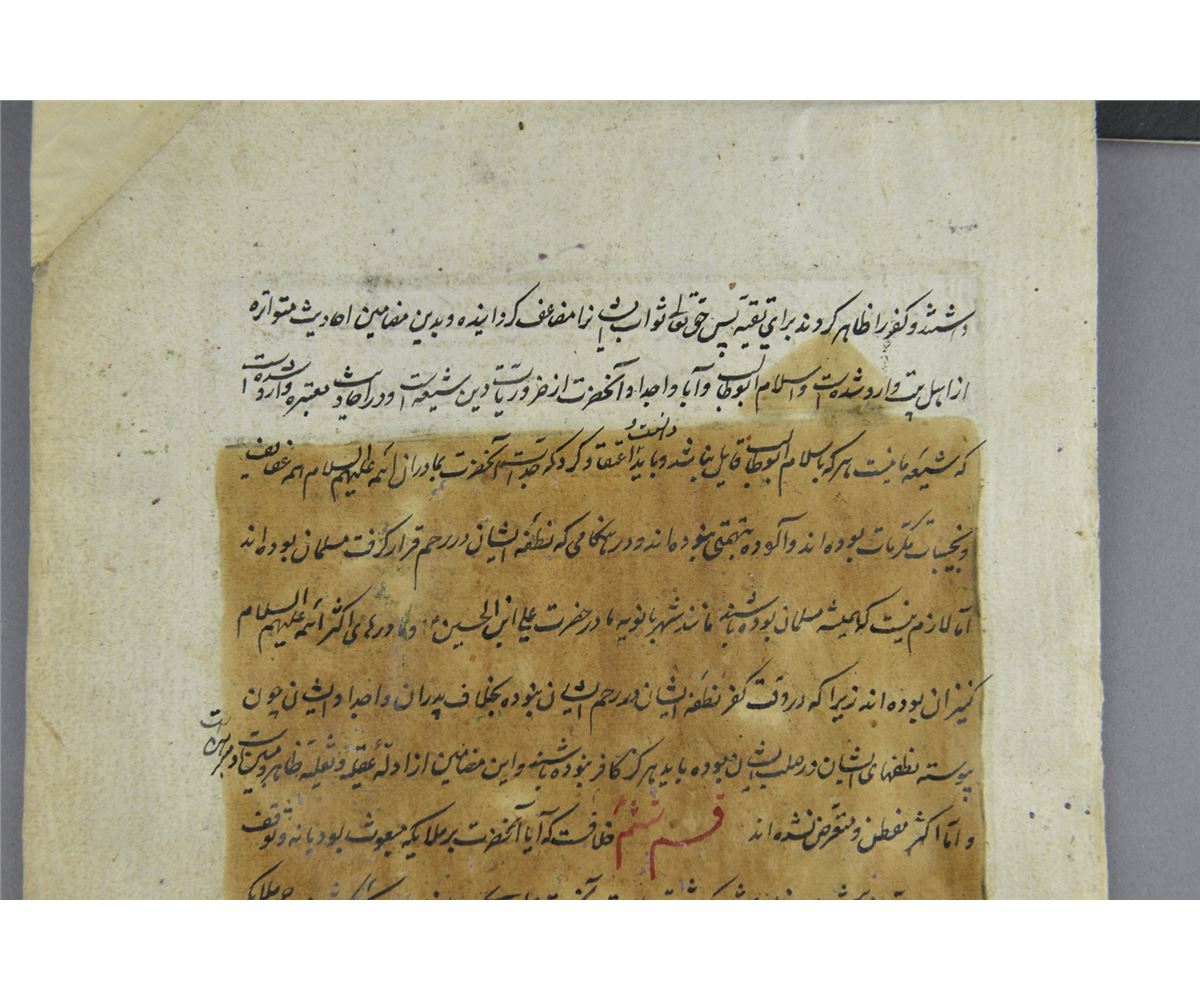 داشتند و کفر را ظاهر کردند برای تقیه پس حق تعالی ثواب ایشانرا مضاعف گردانیده و بدین مضامین احادیث متواتره
از اهل بیت وارد شده است و اسلام ابوطالب و آبا و اجداد آنحضرت از ضروریات دین شیعه است و در احادیث معتبره وارد شده است
که شیعه ما نیست هر که باسلام ابوطالب قایل نباشد و باید دانست و اعتقاد کرد که جدات آنحضرت و مادران ائمه علیهم السلام همه عفایف
و نجیبات مکرمات بوده اند و آلوده بتهمتی نبوده اند و در هنکامی که نطفه ایشان در رحم قرار گرفت مسلمان بوده اند
اما لازم نیست که همیشه مسلمان بوده باشند مانند شهربانویه مادر حضرت علی ابن الحسین ع و مادرهای اکثر ائمه علیهم السلام
کنیزان بوده اند زیرا که در وقت کفر نطفه ایشان در رحم ایشان نبوده بخلاف پدران و اجداد ایشان چون
پیوسته نطفهای ایشان در صلب ایشان میبوده باید هرگز کافر نبوده باشند و این مضامین از ادله عقلیه و نقلیه ظاهر و مبین است
و اما اکثر متفطن و متعرض نشده اند قسم ششم خلافست که آیا آنحضرت بر ملایکه مبعوث بود یا نه و توقف